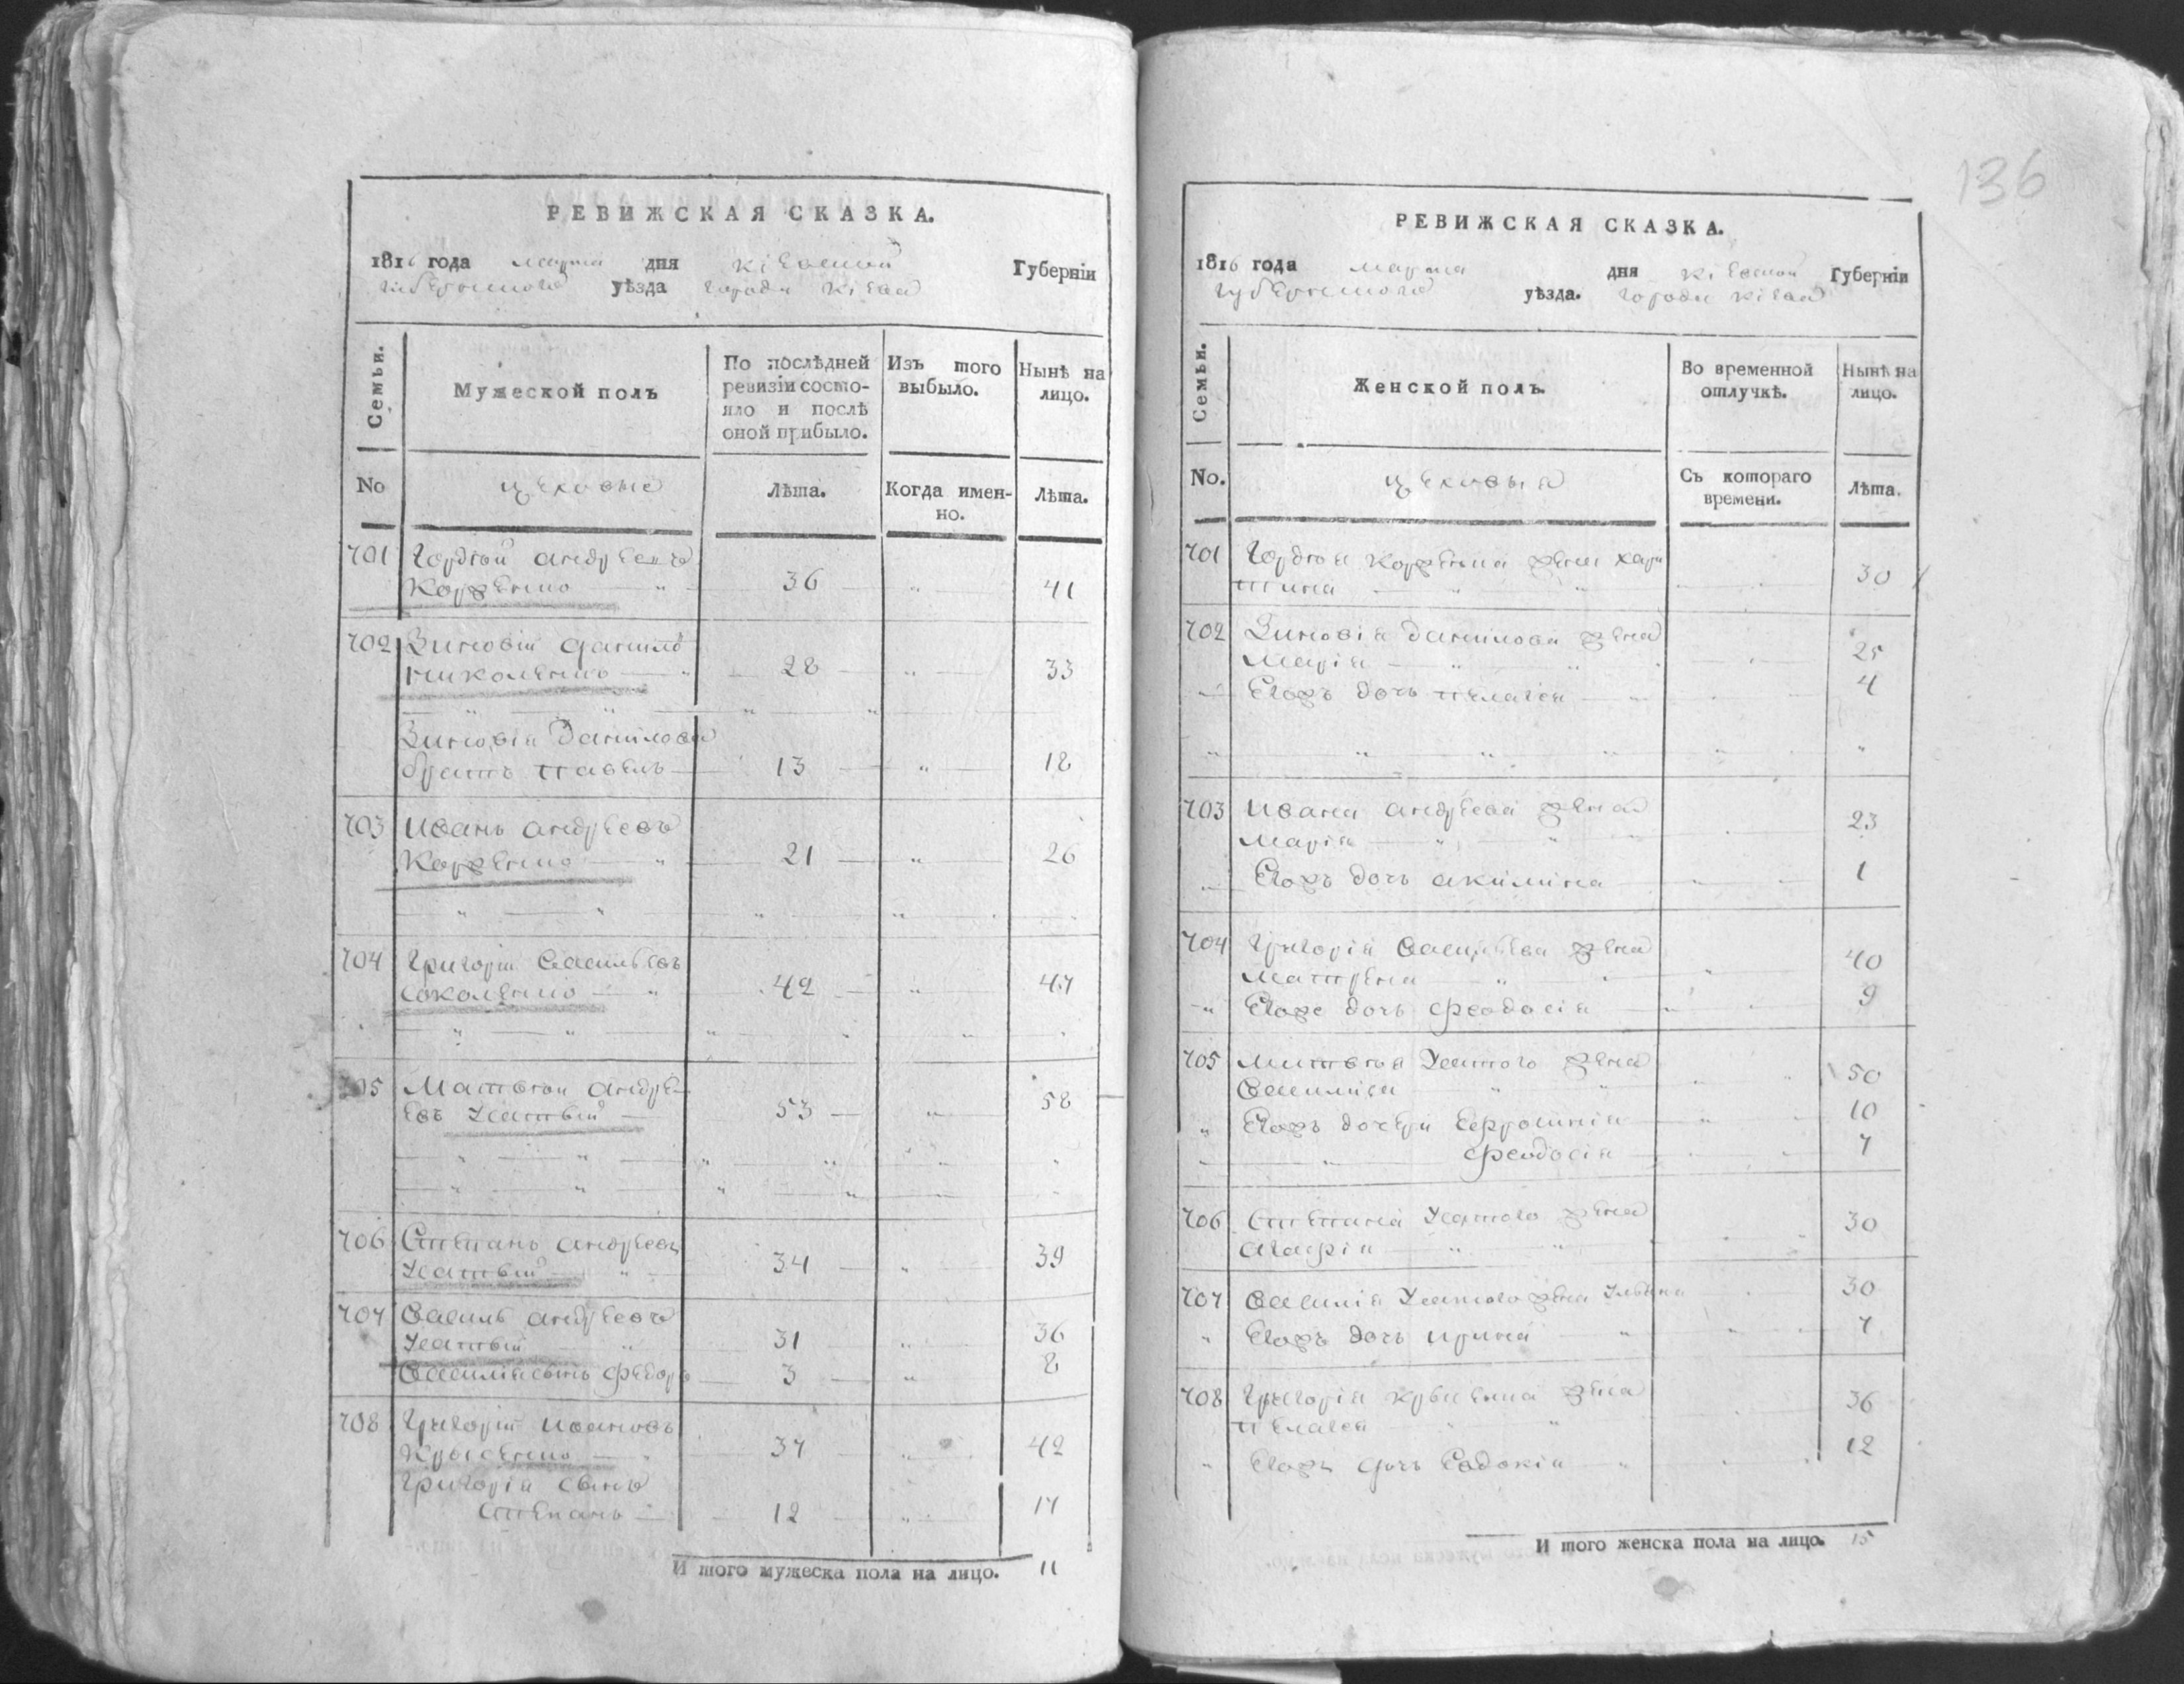 РЕВИЖСКАЯ СКАЗКА.
1816 года марта дня Кіевской Губерніи
губернского уѣзда города Кіева
Семьи.
Мужеской полъ
По послѣдней
ревизіи состо-
яло и послѣ
оной прибыло.
Изъ того
выбыло.
Нынѣ на
лицо.
No
цеховые
Лѣта.
Когда имен-
но.
Лѣта.
701 Гордѣй Андреевъ
Корженко 36 41
702 Зиновій Данило
Николенко 28 33
Зиновія Данилова
братъ Павелъ 13 18
703 Иванъ Андреевъ
Корженко 21 26
704 Григорій Васильевъ
Соколенко 42 47
705 Матвѣй Андре-
евъ Усатый 53 58
706 Степанъ Андреевъ
Усатый 34 39
707 Василь Андреевъ
Усатый 31 36
Василія сынъ Федоръ 3 8
708 Григорій Ивановъ
Крысенко 37 42
Григорія сынъ
Степанъ 12 17
И того мужеска пола на лицо. 11
136
РЕВИЖСКАЯ СКАЗКА.
1816 года марта дня Кіевской Губерніи
губернского уѣзда. города Кіева
Семьи.
Женской полъ.
Во временной
отлучкѣ.
Нынѣ на
лицо.
No.
цеховыя
Съ котораго
времени.
Лѣта.
701 Гордѣя Корженка жена Хари
тина 30
702 Зиновія Данилова жена
Марія 25
Егожъ дочь Пелагея 4
703 Ивана Андреева жена
Марія 23
Егожъ дочь Акилина 1
704 Григорія Васильева жена
Матрена 40
Егоже дочь Феодосія 9
705 Матвѣя Усатого жена
Василиса 50
Егожъ дочери Евфросинія 10
Феодосія 7
706 Степана Усатого жена
Агафія 30
707 Василія Усатого жена Ульяна 30
Егожъ дочь Ирина 7
708 Григорія Крысенка жена
Пелагея 36
Егожъ дочь Евдокія 12
И того женска пола на лицо. 15